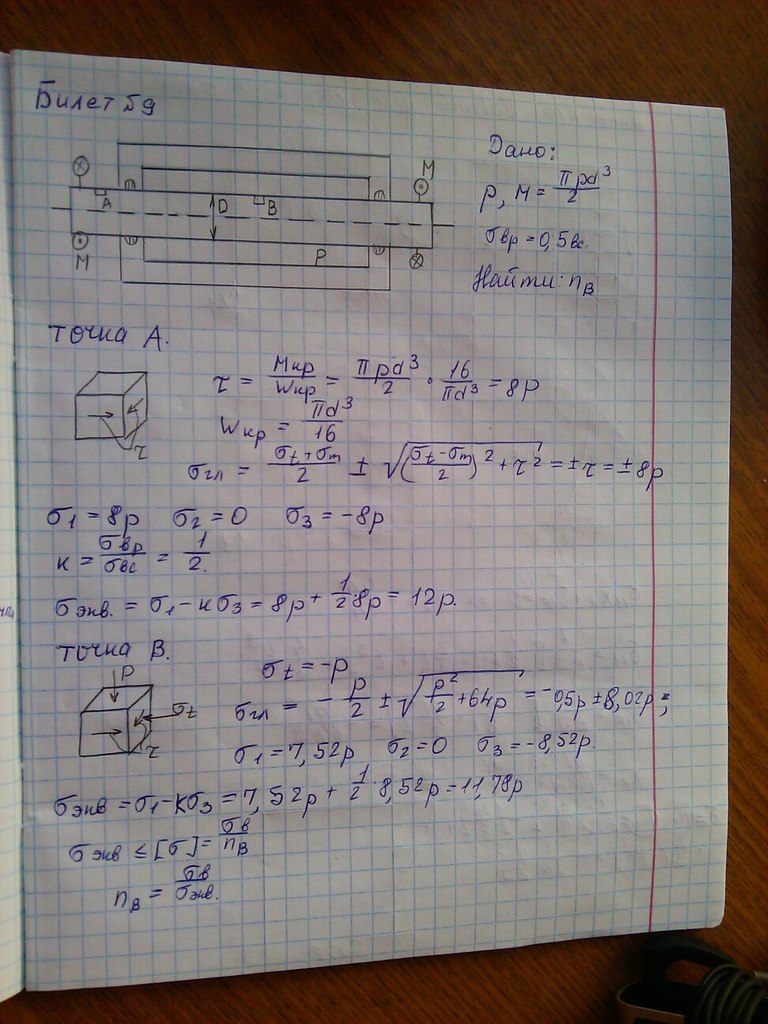 Билет 59
Дано:
p, M = πpd³/2
σвр = 0,5вс.
Найти: nв
M
A
D
B
M
P
точка А.
τ = Mкр/Wкр = πpd³/2 · 16/πd³ = 8p
Wкр = πd³/16
τ
σгл = (σt+σm)/2 ± √((σt-σm)/2)² + τ² = ±τ = ±8p
σ1 = 8p σ2 = 0 σ3 = -8p
к = σвр/σвс = 1/2.
σэкв. = σ1 - кσ3 = 8p + 1/2 8p = 12p.
точка В.
P
σt = -p
σt
τ
σгл = - p/2 ± √(p²/2 + 64p) = -0,5p ± 8,02p;
σ1 = 7,52p σ2 = 0 σ3 = -8,52p.
σэкв = σ1 - кσ3 = 7,52p + 1/2 · 8,52p = 11,78p
σэкв ≤ [σ] = σв/nв
nв = σв/σэкв.